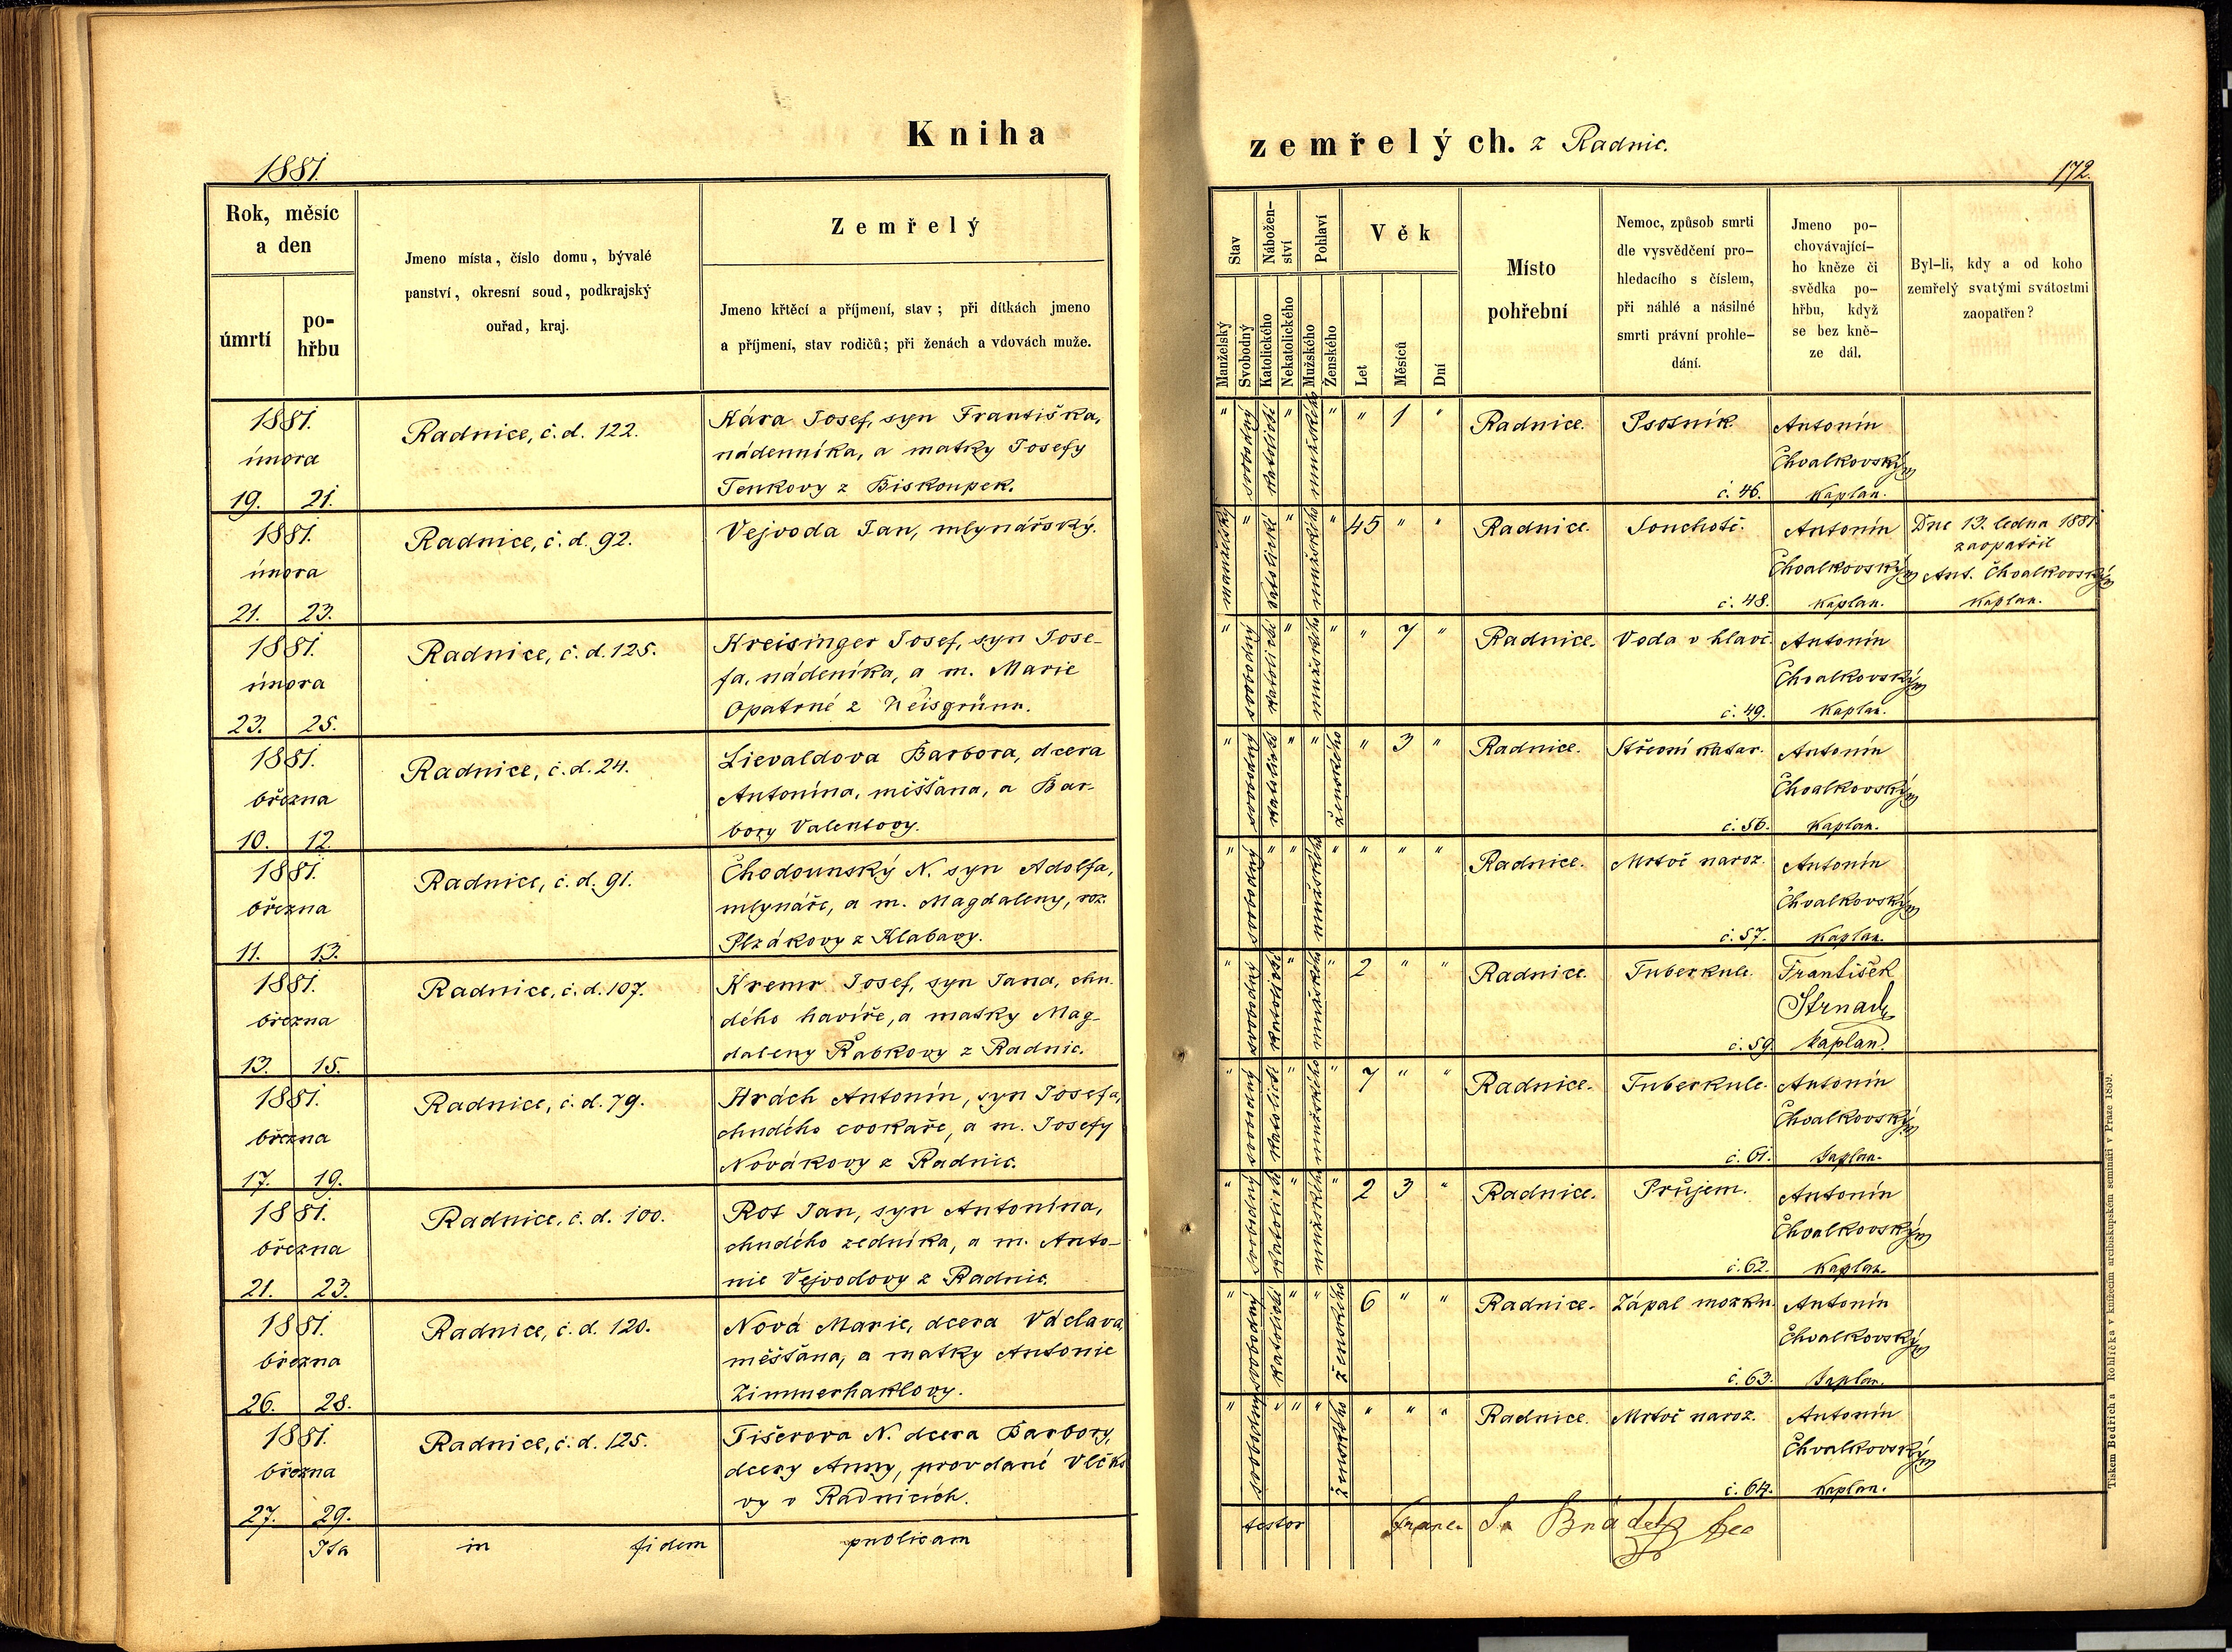 Kniha
zemřelých. z Radnic.
1881.
172.
Rok, měsíc
a den
úmrtí
po-
hřbu
Jmeno místa, číslo domu, bývalé
panství, okresní soud, podkrajský
ouřad, kraj.
Zemřelý
Jmeno křtěcí a příjmení, stav; při dítkách jmeno
a příjmení, stav rodičů; při ženách a vdovách muže.
Stav
Manželský
Svobodný
Nábožen-
ství
Katolického
Nekatolického
Pohlaví
Mužského
Ženského
Věk
Let
Měsíců
Dní
Místo
pohřební
Nemoc, způsob smrti
dle vysvědčení pro-
hledacího s číslem,
při náhlé a násilné
smrti právní prohle-
dání.
Jmeno po-
chovávající-
ho kněze či
svědka po-
hřbu, když
se bez kně-
ze dál.
Byl-li, kdy a od koho
zemřelý svatými svátostmi
zaopatřen?
1881.
února
19. 21.
Radnice, č. d. 122.
Kára Josef, syn Františka,
nádenníka, a matky Josefy
Tenkovy z Biskoupek.
" svobodný katolické " mužského " " 1 "
Radnice.
Psotník
č. 46.
Antonín
Chvalkovský
kaplan.
1881.
února
21. 23.
Radnice, č. d. 92.
Vejvoda Jan, mlynářský.
manželský " katolické " mužského " 45 " "
Radnice.
Souchotě.
č. 48.
Antonín
Chvalkovský
kaplan.
Dne 13. ledna 1881
zaopatřil
Ant. Chvalkovský
kaplan.
1881.
února
23. 25.
Radnice, č. d. 125.
Kreisinger Josef, syn Jose-
fa, nádeníka, a m. Marie
Opatrné z Weisgrünu.
" svobodný katolické " mužského " " 7 "
Radnice.
Voda v hlavě.
č. 49.
Antonín
Chvalkovský
kaplan.
1881.
března
10. 12.
Radnice, č. d. 24.
Lievaldova Barbora, dcera
Antonína, měšťana, a Bar-
bory Valentovy.
" svobodný katolické " " ženského " 3 "
Radnice.
Střevní katar.
č. 56.
Antonín
Chvalkovský
kaplan.
1881.
března
11. 13.
Radnice, č. d. 91.
Chodounský N. syn Adolfa,
mlynáře, a m. Magdaleny, roz.
Plzákovy z Klabavy.
" svobodný " " mužského " " " "
Radnice.
Mrtvě naroz.
č. 57.
Antonín
Chvalkovský
kaplan.
1881.
března
13. 15.
Radnice, č. d. 107.
Kremr Josef, syn Jana, chu.
dého havíře, a matky Mag-
daleny Řabkovy z Radnic.
" svobodný katolické " mužského " 2 " "
Radnice.
Tuberkule.
č. 59.
František
Strnad
kaplan.
1881.
března
17. 19.
Radnice, č. d. 79.
Hrách Antonín, syn Josefa,
chudého cvokaře, a m. Josefy
Novákovy z Radnic.
" svobodný katolické " mužského " 7 " "
Radnice.
Tuberkule.
č. 61.
Antonín
Chvalkovský
kaplan.
1881.
března
21. 23.
Radnice, č. d. 100.
Rot Jan, syn Antonína,
chudého zedníka, a m. Anto-
nie Vejvodovy z Radnic.
" svobodný katolické " mužského " 2 3 "
Radnice.
Průjem.
č. 62.
Antonín
Chvalkovský
kaplan.
1881.
března
26. 28.
Radnice, č. d. 120.
Nová Marie, dcera Václava,
měšťana, a matky Antonie
Zimmerhaklovy.
" svobodný katolické " " ženského 6 " "
Radnice.
Zápal mozku.
č. 63.
Antonín
Chvalkovský
kaplan.
1881.
března
27. 29.
Radnice, č. d. 125.
Tišerova N. dcera Barbory,
dcery Anny, provdané Vlčko
vy v Radnicích.
" svobodný " " " ženského " " "
Radnice.
Mrtvě naroz.
č. 64.
Antonín
Chvalkovský
kaplan.
Ita in fidem publicam
testor
Tiskem Bedřicha Rohlíčka v knížecím arcibiskupském semináři v Praze 1859.